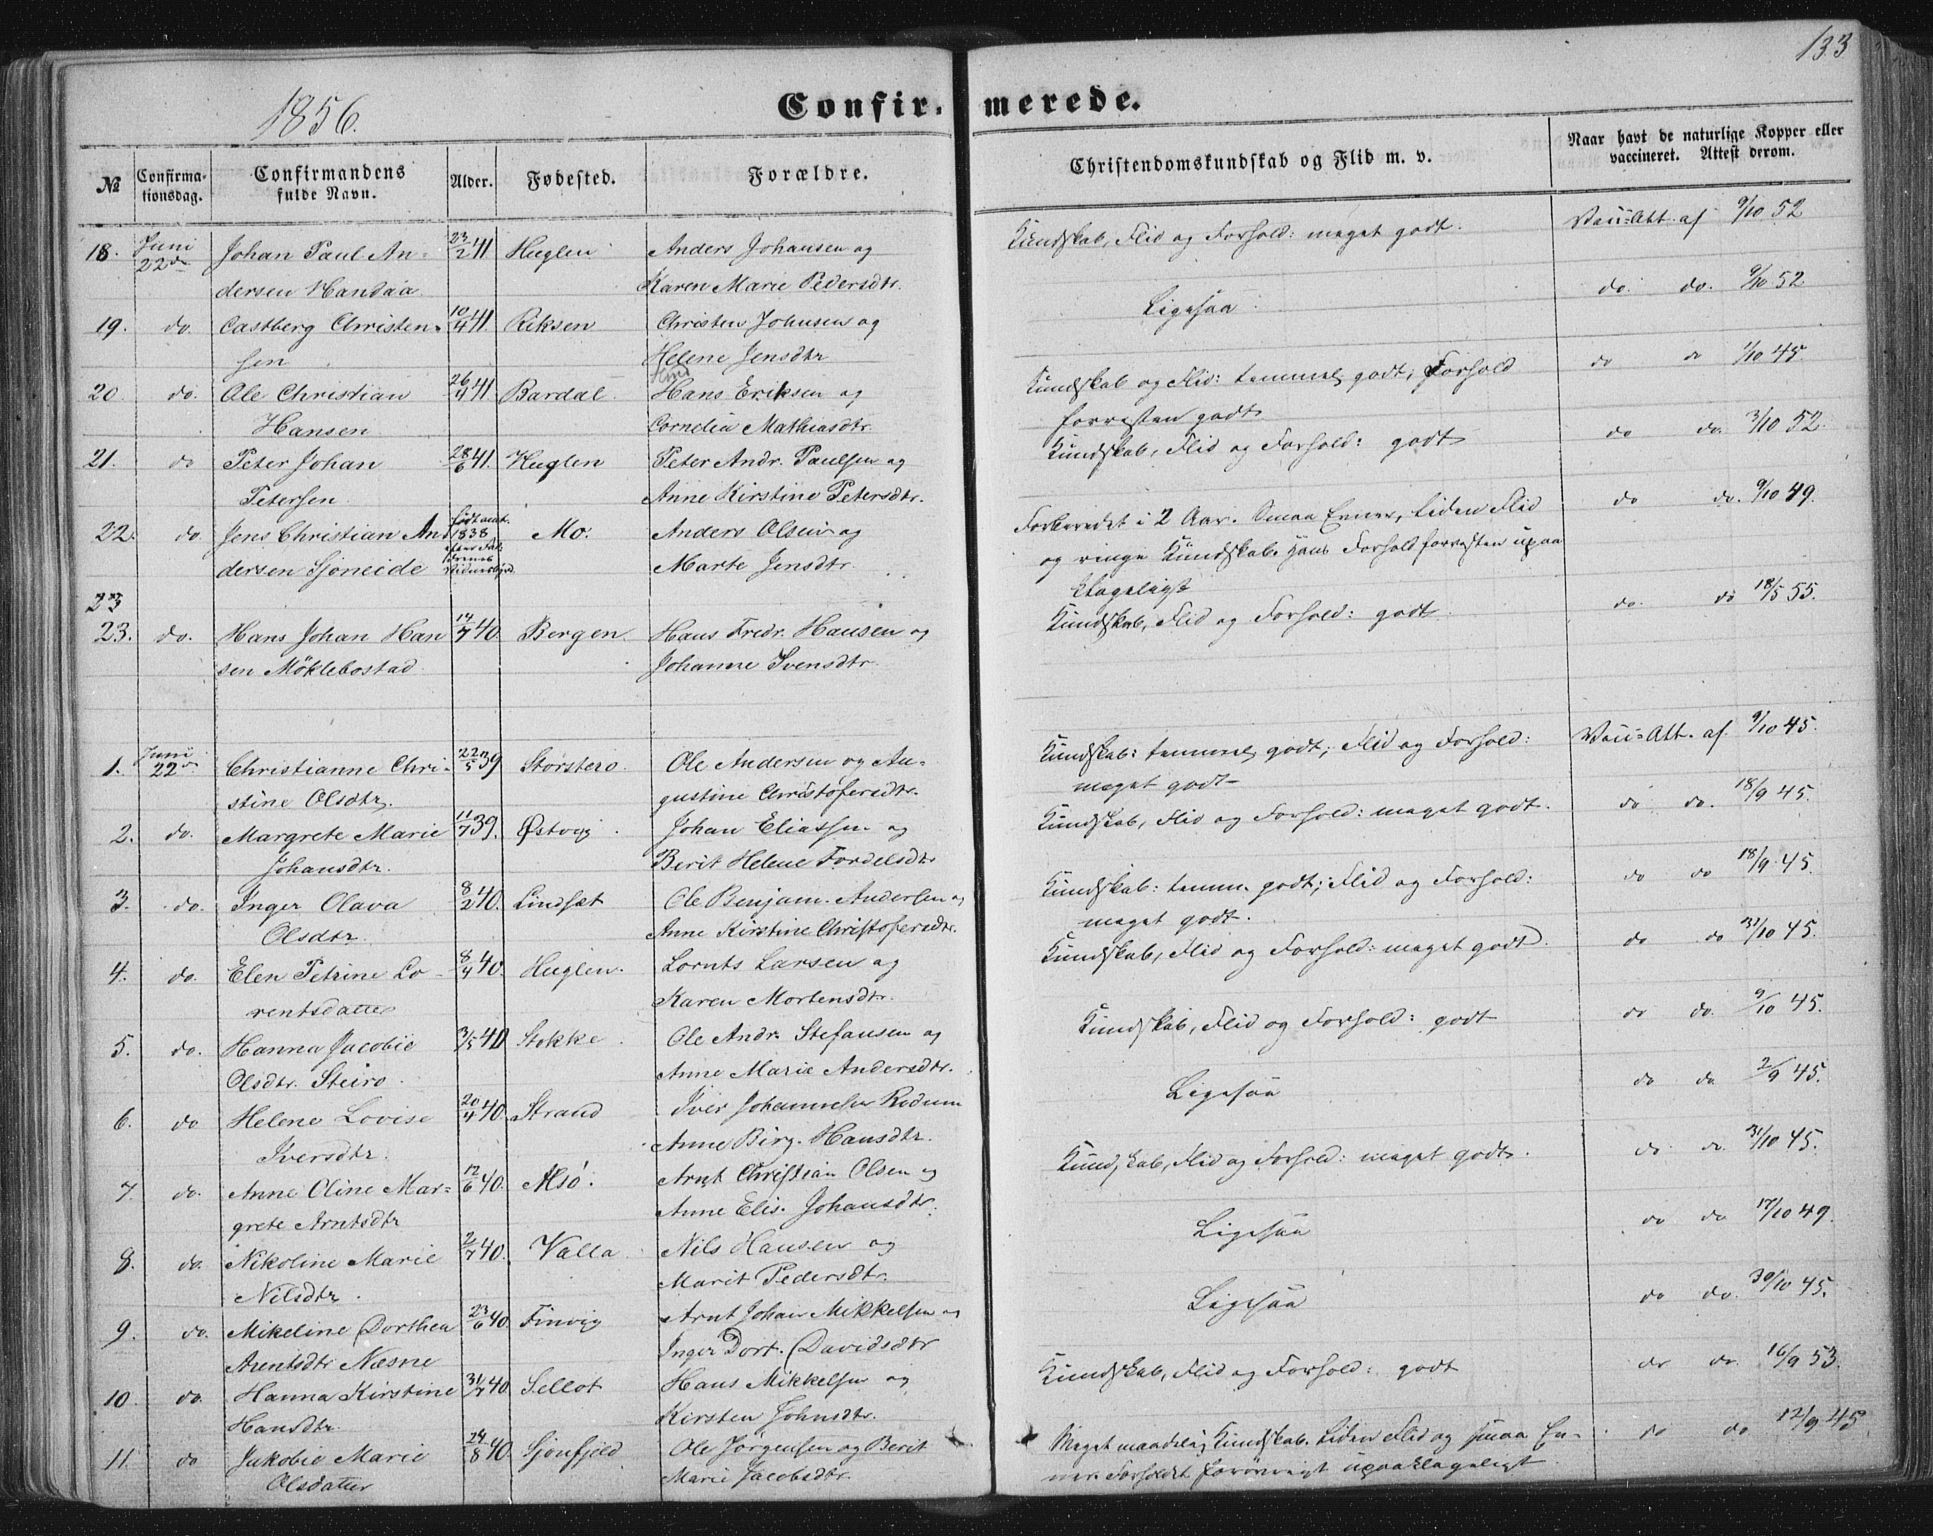 133
1856.
Confir- merede.
№ Confirmationsdag. Confirmandens fulde Navn. Alder. Fødested. Forældre. Christendomskundskab og Flid m. v. Naar havt de naturlige Kopper eller vaccineret. Attest derom.
18. Juni 22de Johan Paul An- 23/2 41 Huglen Anders Johansen og Kundskab, Flid og Forhold: meget godt. Vacc. Att. af 9/10 52
dersen Handaa. Karen Marie Pedersdtr.
19. do. Castberg Christen- 10/4 41. Riksen Christen Johnsen og Ligesaa do. do. 9/10 52.
sen Helene Jensdtr
20. do. Ole Christian 26/4 41 Bardal. Hans Eriksen og Kundskab og Flid: temmel. godt; Forhold do do 1/10 45
Hansen Cornelia Mathiasdtr. forresten godt
21. do Peter Johan 28/6 41. Huglen Peter Andr. Paulsen og Kundskab, Flid og Forhold: godt do do. 3/10 52.
Petersen Anne Kirstine Petersdtr.
22. do. Jens Christian An 1838 Mo. Anders Olsen og Forberedet i 2 Aar. Smaa Evner, liden Flid do do. 9/10 49.
dersen Sjoneide Marte Jensdtr og ringe Kundskab. Hans Forhold forresten upaa
klageligt
23
23. do. Hans Johan Han 14/7 40. Bergen Hans Fredr. Hansen og Kundskab, Flid og Forhold: godt. do. do 18/5 55.
sen Möklebostad Johanne Svensdtr.
1. Juni 22de Christianne Chri- 22/5 39 Störstero. Ole Andersen og Au- Kundskab: temmel. godt; Flid og Forhold: Vacc. Att. af 9/10 45.
stine Olsdtr. gustine Christofersdtr. meget godt
2. do. Margrete Marie 11/7 39. Østvig Johan Eliassen og Kundskab, Flid og Forhold: meget godt. do do. 18/9 45.
Johansdtr. Berit Helene Tordelsdtr
3. do. Inger Olava 8/2 40. Lindset Ole Benjam. Andersen og Kundskab: temm. godt; Flid og Forhold: do do 18/9 45.
Olsdtr. Anne Kirstine Christofersdtr. meget godt.
4. do. Elen Petrine Lo- 8/4 40. Huglen. Lornts Larsen og Kundskab, Flid og Forhold: meget godt. do do 31/10 45.
rentsdatter Karen Mortensdtr.
5. do. Hanna Jacobie 3/5 40 Stokke Ole Andr. Stefansen og Kundskab, Flid og Forhold: godt do do. 9/10 45.
Olsdtr. Steiro. Anne Marie Andersdtr.
6. do Helene Lovise 20/4 40. Strand Iver Johannesen Rodum Ligesaa do do. 2/9 45.
Iversdtr. Anne Birg. Hansdtr.
7. do. Anne Oline Mar- 12/6 40. Alsö. Arnt Christian Olsen og Kundskab, Flid og Forhold: meget godt. do do. 31/10 45.
grete Arntsdtr Anne Elis. Johansdtr.
8. do. Nikoline Marie 2/7 40. Valla Nils Hansen og Ligesaa do do 17/10 49.
Nilsdtr. Marit Pedersdtr.
9. do. Mikeline Dorthea 23/6 40. Finvig Arnt Johan Mikkelsen og Ligesaa do do. 30/10 45.
Arentsdtr Næsne Inger Dort. Davidsdtr
10. do. Hanna Kirstine 31/7 40. Sellot Hans Mikkelsen og Kundskab, Flid og Forhold: godt do do. 16/9 53.
Hansdtr. Kirsten Johnsdtr.
11. do Jakobie Marie 24/8 40. Sjonfjeld. Ole Jörgensen og Berit Meget maadelig Kundskab. Liden Flid og smaa Ev- do do 12/9 45
Olsdatter Marie Jacobsdtr. ner. Forholdet forøvrigt upaaklageligt.